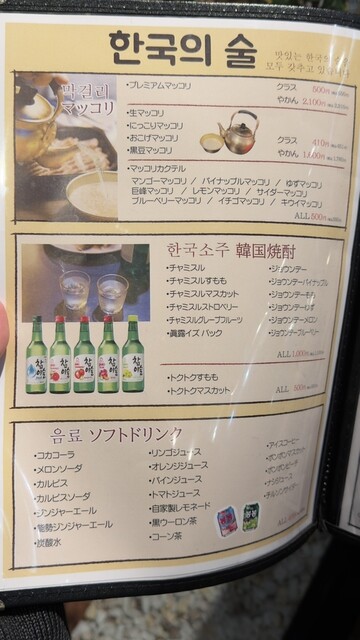 한국의 술
맛있는 한국의
모두 갖추고 있습니다
막걸리
マッコリ
・プレミアムマッコリ グラス 500円
やかん 2,100円
・生マッコリ
・にっこりマッコリ
・おこげマッコリ グラス 410円
・黒豆マッコリ やかん 1,600円
・マッコリカクテル
マンゴーマッコリ / パイナップルマッコリ / ゆずマッコリ
巨峰マッコリ / レモンマッコリ / サイダーマッコリ
ブルーベリーマッコリ / イチゴマッコリ / キウイマッコリ
ALL 500円
한국소주 韓国焼酎
・チャミスル
・チャミスルすもも
・チャミスルマスカット
・チャミスルストロベリー
・チャミスルグレープフルーツ
・眞露イズ バック
・ジョウンデー
・ジョウンデーパイナップル
・ジョウンデーもも
・ジョウンデーゆず
・ジョウンデーメロン
・ジョウンデーブルーベリー
ALL 1,000円
・トクトクすもも
・トクトクマスカット ALL 500円
음료 ソフトドリンク
・コカコーラ
・メロンソーダ
・カルピス
・カルピスソーダ
・ジンジャーエール
・能勢ジンジャーエール
・炭酸水
・リンゴジュース
・オレンジジュース
・パインジュース
・トマトジュース
・自家製レモネード
・黒ウーロン茶
・コーン茶
・アイスコーヒー
・ポンポンマスカット
・ポンポンピーチ
・ナシジュース
・チルソンサイダー
ALL